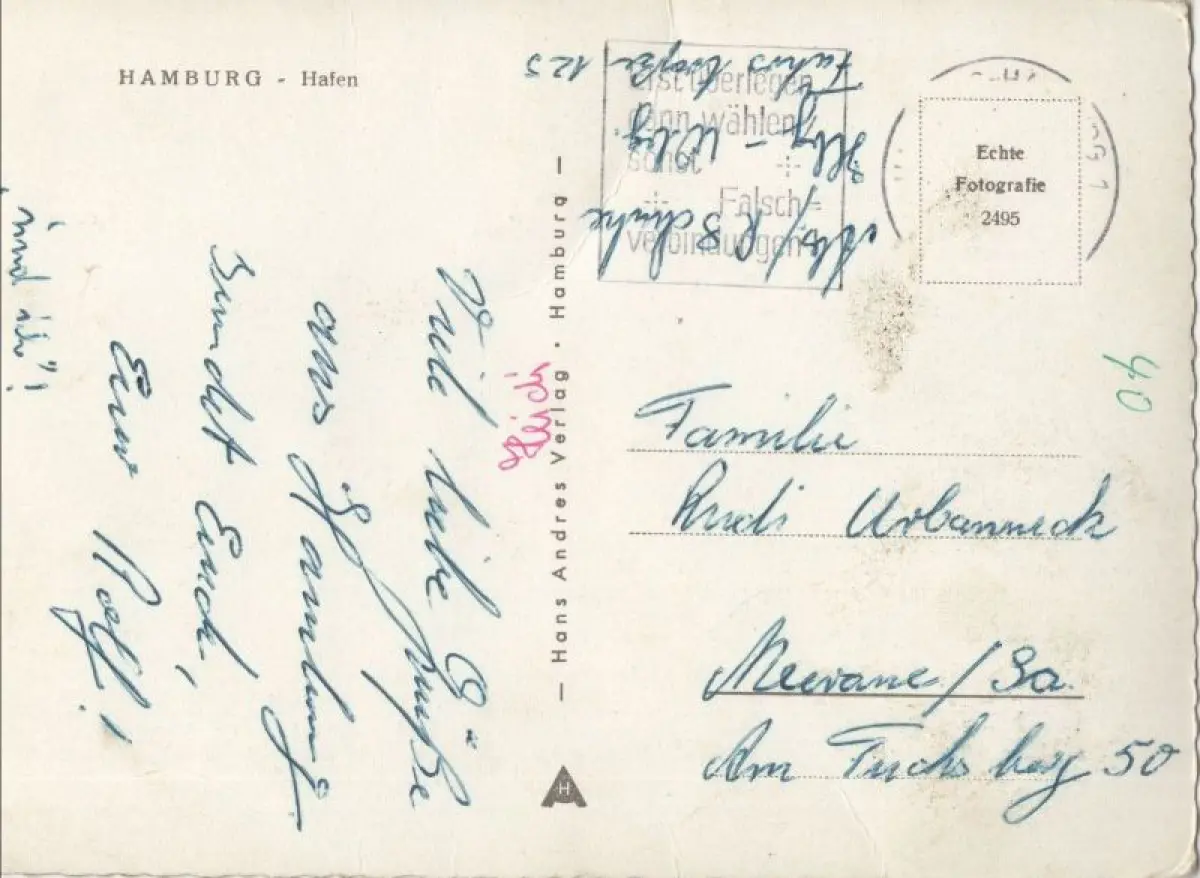 HAMBURG - Hafen
Viele liebe Grüße
aus Hamburg
sendet Euch,
Euer Rolf!
und ich"!
Heidi
— Hans Andres Verlag · Hamburg —
H
Abs/R Schuhe
Hbg - Wbg.
125
Erst überlegen
dann wählen
sonst
Falsch-
verbindungen
Echte
Fotografie
2495
40
Familie
Rudi Urbanneck
Meerane/Sa.
Am Fuchsberg 50